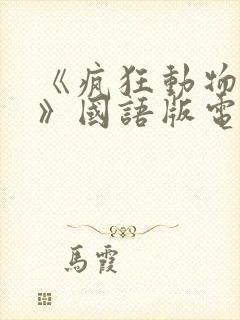 《瘋狂動物
》國語版電
馬霞